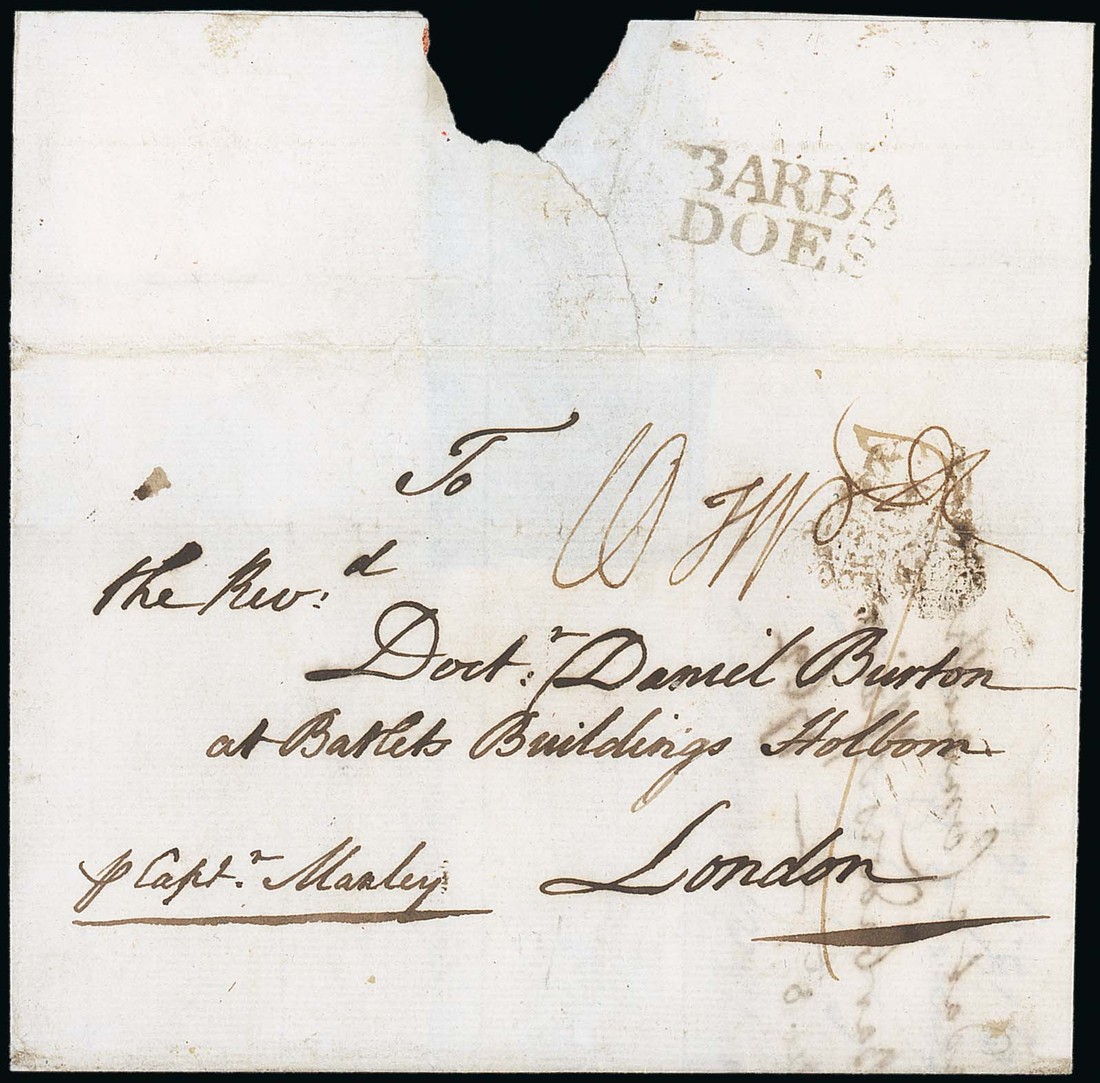 BARBA
DOES
To
the Rev:d
Doct:r Daniel Burton
at Batlets Buildings Holborn
London
p Capt:n Marley